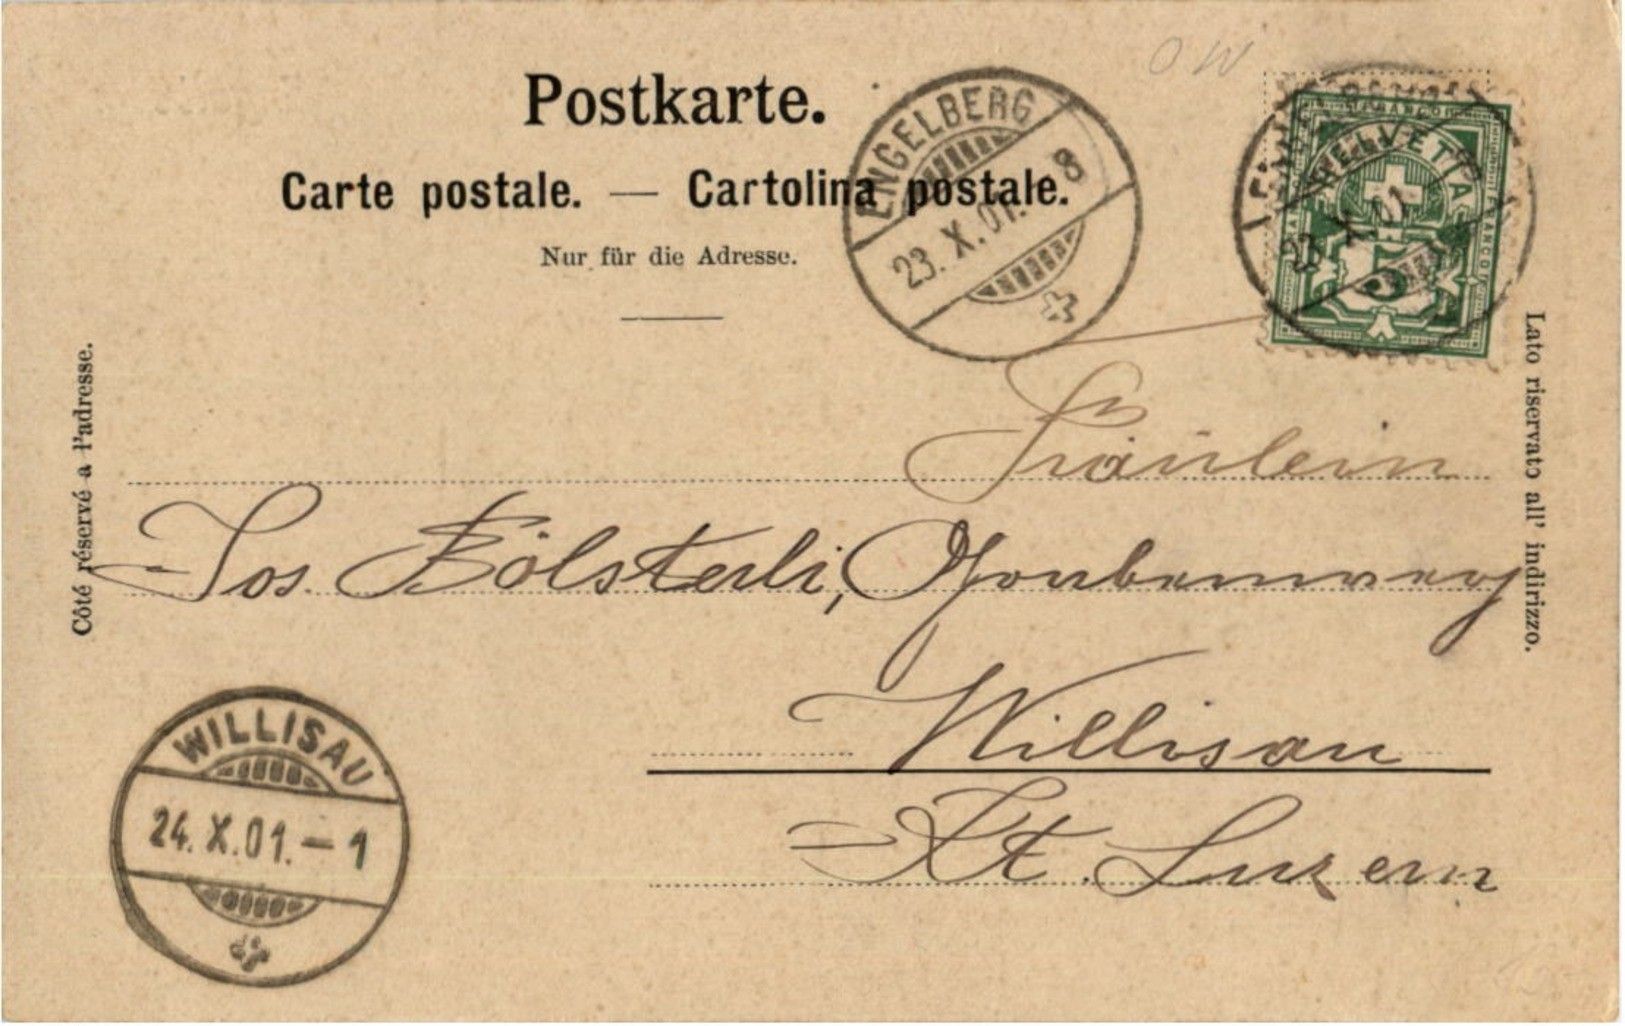 OW
Postkarte.
Carte postale. — Cartolina postale.
Nur für die Adresse.
ENGELBERG
23. X. 01. 8
FRANCO
HELVETIA
FRANCO
23. X. 01
Côté réservé a l'adresse.
Lato riservato all' indirizzo.
Fräulein
Jos. Bölsterli,
Willisau
Kt. Luzern
WILLISAU
24. X. 01. – 1